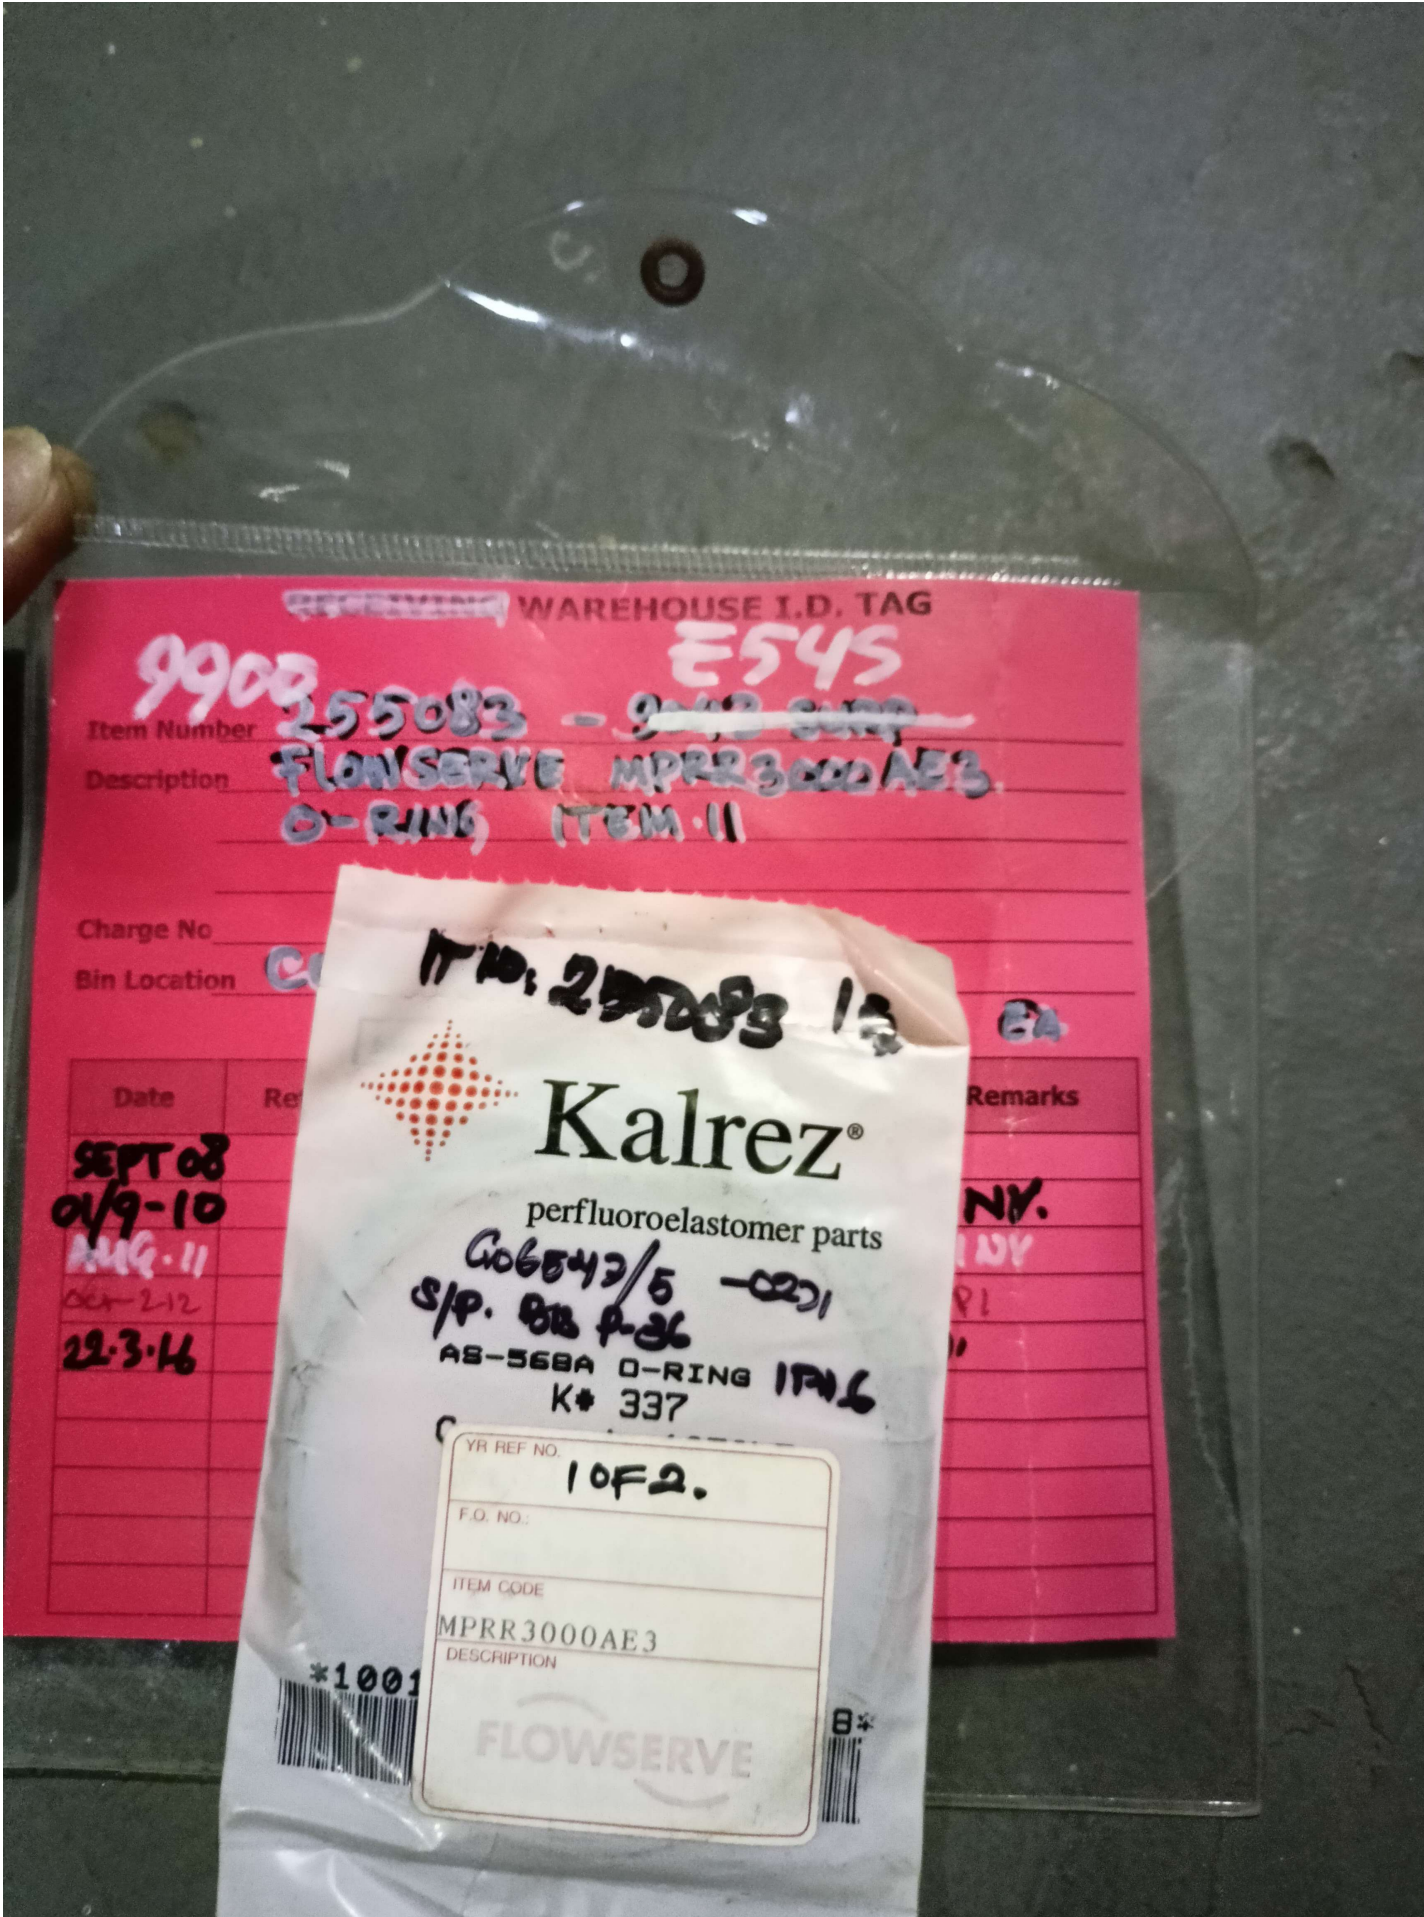 RECEIVING WAREHOUSE I.D. TAG
9900 E545
Item Number 255083 -
Description FLOWSERVE MPRR3000AE3.
O-RING ITEM.11
Charge No
Bin Location
EA
Date Remarks
SEPT 08
01/9-10 NY.
AUG.11 NY
OCT-2-12
22.3.16
255083
Kalrez®
perfluoroelastomer parts
S/P. P-36
AS-568A O-RING
K# 337
YR REF NO.
1 OF 2.
F.O. NO.:
ITEM CODE
MPRR3000AE3
DESCRIPTION
FLOWSERVE
*1001 8*